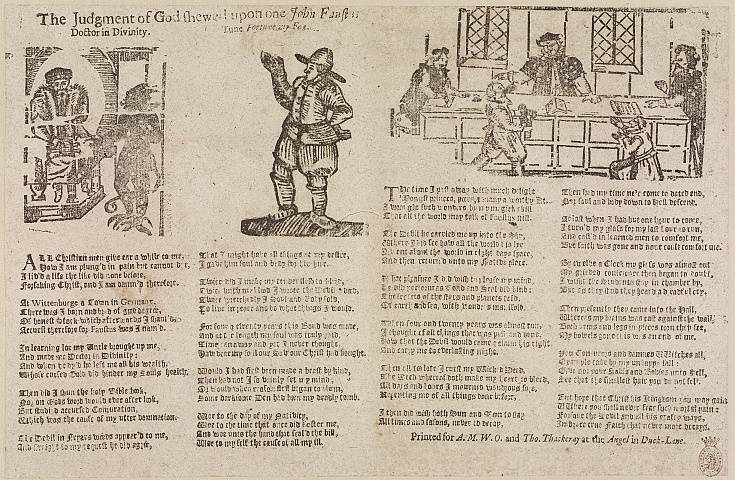 The Judgment of God shewed upon one John Faustus
Doctor in Divinity.
Tune Fortune my Foe.
ALL Christian men give ear a while to me,
How I am plung'd in pain but cannot die,
I liv'd a life the like did none before,
Forsaking Christ, and I am damn'd therefore.
At Wittenburge a Town in Germany,
There was I born and bred of good degree,
Of honest Stock which afterwards I sham'd,
Accurst therefore for Faustus was I nam'd.
In learning loe my Uncle brought up me,
And made me Doctor in Divinity:
And when he dy'd he left me all his wealth,
Whose cursed Gold did hinder my souls health.
Then did I shun the holy Bible book,
Nor on Gods word would ever after look,
But studi'd accursed Conjuration,
Which was the cause of my utter damnation.
The Devil in Fryars weeds appear'd to me,
And straight to my request he did agree,
That I might have all things at my desire,
I gave him soul and body for his hire.
Twice did I make my tender flesh to bleed,
Twice with my blood I wrote the Devil a deed,
Twice wretchedly I Soul and Body sold,
To live in peace and do what things I would.
For four and twenty years this Bond was made,
And at the length my soul was truly paid,
Time ran away and yet I never thought,
How dear my Soul our Saviour Christ had bought.
Would I had first been made a beast by kind,
Then had not I so vainly set my mind;
Or would when reason first began to bloom,
Some darksome Den had been my deadly tomb.
Woe to the day of my Nativity,
Woe to the time that once did foster me,
And woe unto the hand that seal'd the bill,
Woe to my self the cause of all my ill.
The time I past away with much delight
'Mongst princes, peers, and many a worthy Knight,
I wrought such wonders by my magick skill
That all the world may talk of Faustus still.
The Devil he carried me up into the Sky,
Where I did see how all the world did lye
I went about the world in eight days space,
And then return'd unto my Native place.
What pleasure I did wish to please my mind,
He did perform as bond and Seal did bind;
The secrets of the stars and planets told,
Of earth and sea, with wonders manifold.
When four and twenty years was almost run,
I thought of all things that was past and done.
How that the Devil would come and claim his right
And carry me to everlasting night.
Then all too late I curst my wicked Deed,
The dread whereof doth make my heart to bleed,
All days and hours I mourned wondrous sore,
Repenting me of all things done before.
I then did wish both Sun and Moon to stay
All times and seasons, never to decay,
Then had my time ne'r come to dated end,
Nor soul and body down to Hell descend.
At last when I had but one hour to come,
I turn'd my glass for my last hour to run,
And call'd in learned men to comfort me,
But faith was gone and none could comfort me.
By twelve a Clock my glass was almost out
My grieved conscience then began to doubt,
I wisht the Students stay in chamber by,
But as they staid they heard a dreadful cry.
Then presently they came into the Hall,
Whereas my brains was cast against the wall,
Both arms and legs in pieces torn they see,
My bowels gone, this was an end of me.
You Conjurers and damned Witches all,
Example take by my unhappy fall:
Give not your Souls and bodies unto Hell,
See that the smallest hair you do not sell.
But hope that Christ his Kingdom you may gain
Where you shall never fear such mortal pain:
Forsake the Devil and all his crafty ways,
Embrace true Faith that never more decays.
Printed for A. M. W. O. and Tho. Thackeray at the Angel in Duck-Lane.